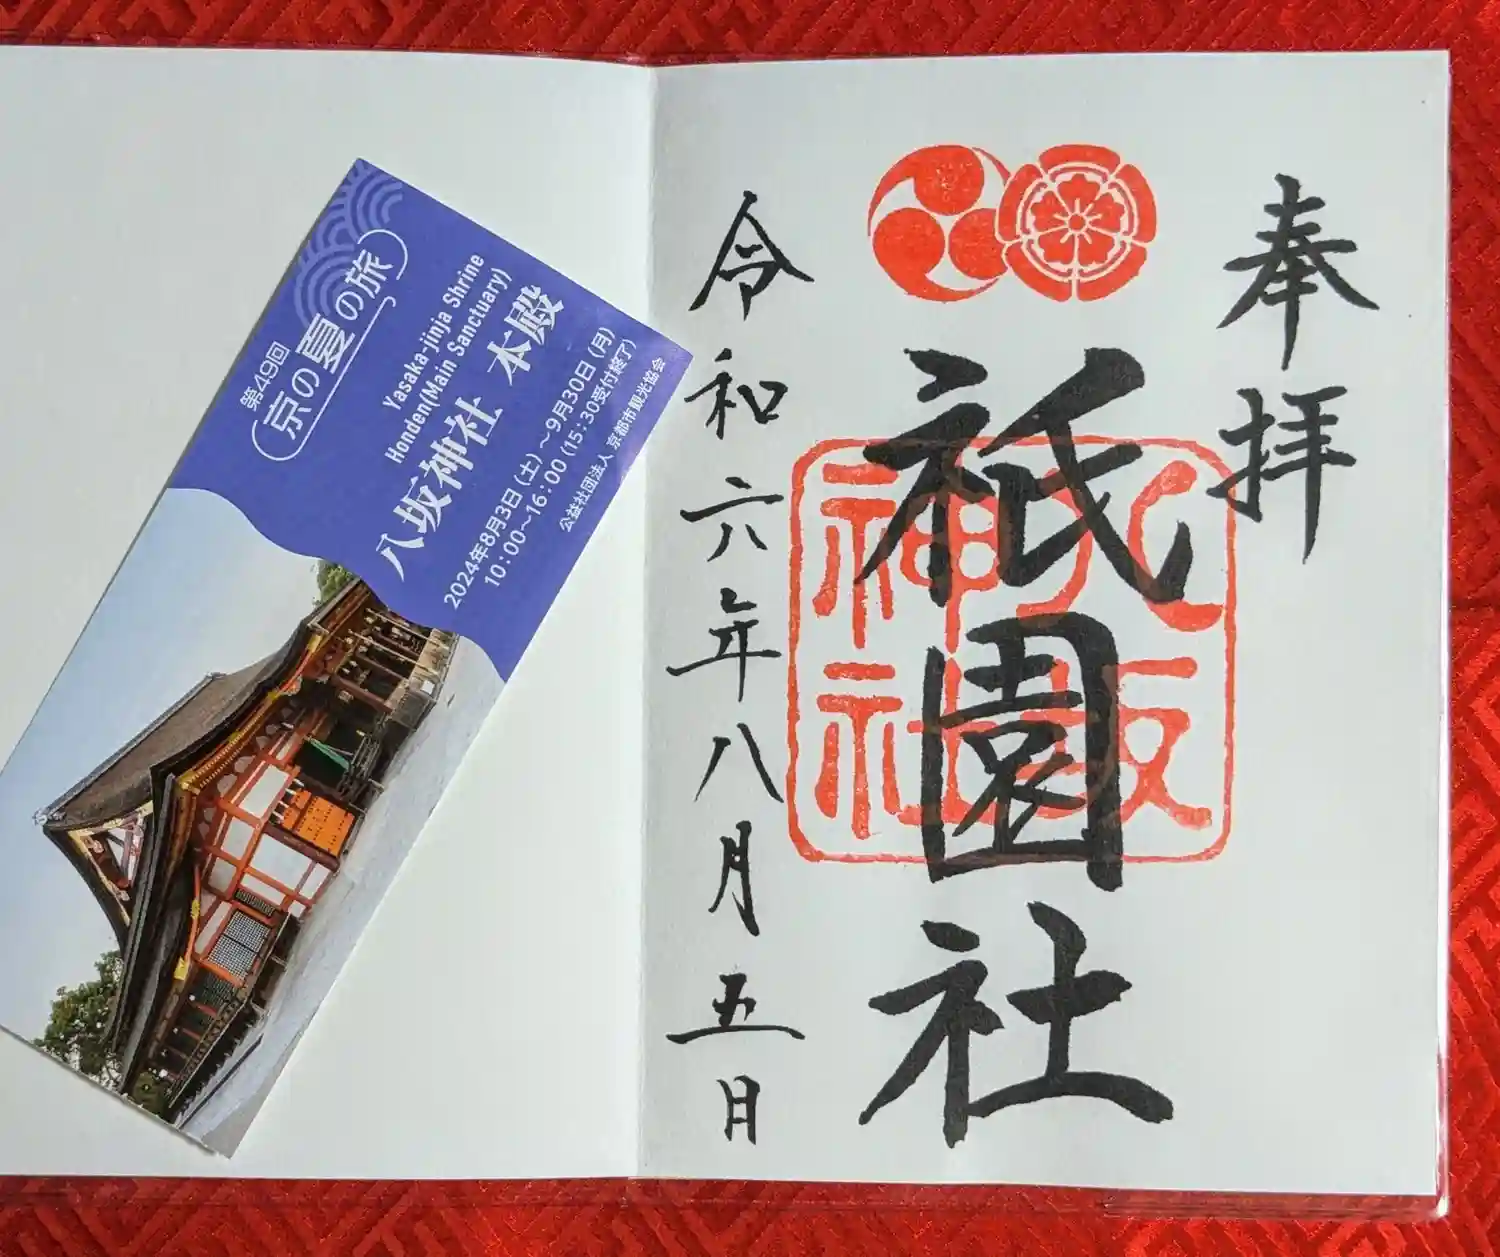 奉拝
祇園社
八坂
神社
令和六年八月五日
第49回
京の夏の旅
Yasaka-jinja Shrine
Honden(Main Sanctuary)
八坂神社 本殿
2024年8月3日(土)～9月30日(月)
10:00～16:00 (15:30受付終了)
公益社団法人 京都市観光協会